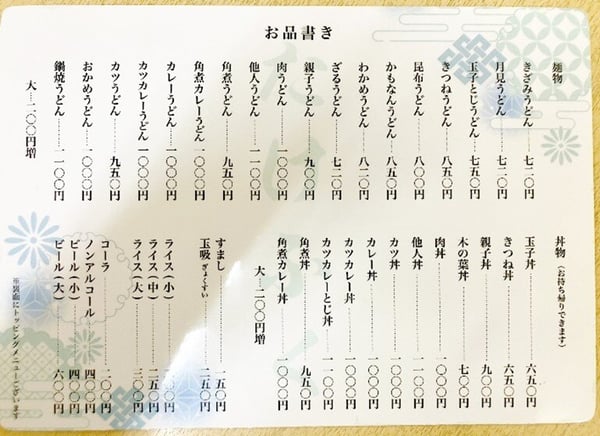 お品書き
麺物
きざみうどん 七二〇円
月見うどん 七二〇円
玉子とじうどん 七五〇円
きつねうどん 八五〇円
昆布うどん 八〇〇円
かもなんうどん 八五〇円
わかめうどん 八二〇円
ざるうどん 七二〇円
親子うどん 九〇〇円
肉うどん 一〇〇〇円
他人うどん 一一〇〇円
角煮うどん 九五〇円
角煮カレーうどん 一〇〇〇円
カレーうどん 一〇〇〇円
カツカレーうどん 一〇〇〇円
カツうどん 九五〇円
おかめうどん 一〇〇〇円
鍋焼うどん 一一〇〇円
大 二〇〇円増
丼物(お持ち帰りできます)
玉子丼 六五〇円
きつね丼 六五〇円
親子丼 九〇〇円
木の葉丼 七〇〇円
肉丼 一〇〇〇円
他人丼 一〇〇〇円
カツ丼 一〇〇〇円
カレー丼 一〇〇〇円
カツカレー丼 一〇〇〇円
カツカレーとじ丼 一〇〇〇円
角煮丼 九五〇円
角煮カレー丼 一〇〇〇円
大 二〇〇円増
すまし 一五〇円
玉吸ぎょくすい 二五〇円
ライス(小) 二〇〇円
ライス(中) 二五〇円
ライス(大) 三〇〇円
コーラ 二〇〇円
ノンアルコール 四〇〇円
ビール(小) 四〇〇円
ビール(大) 六〇〇円
※裏面にトッピングメニューございます